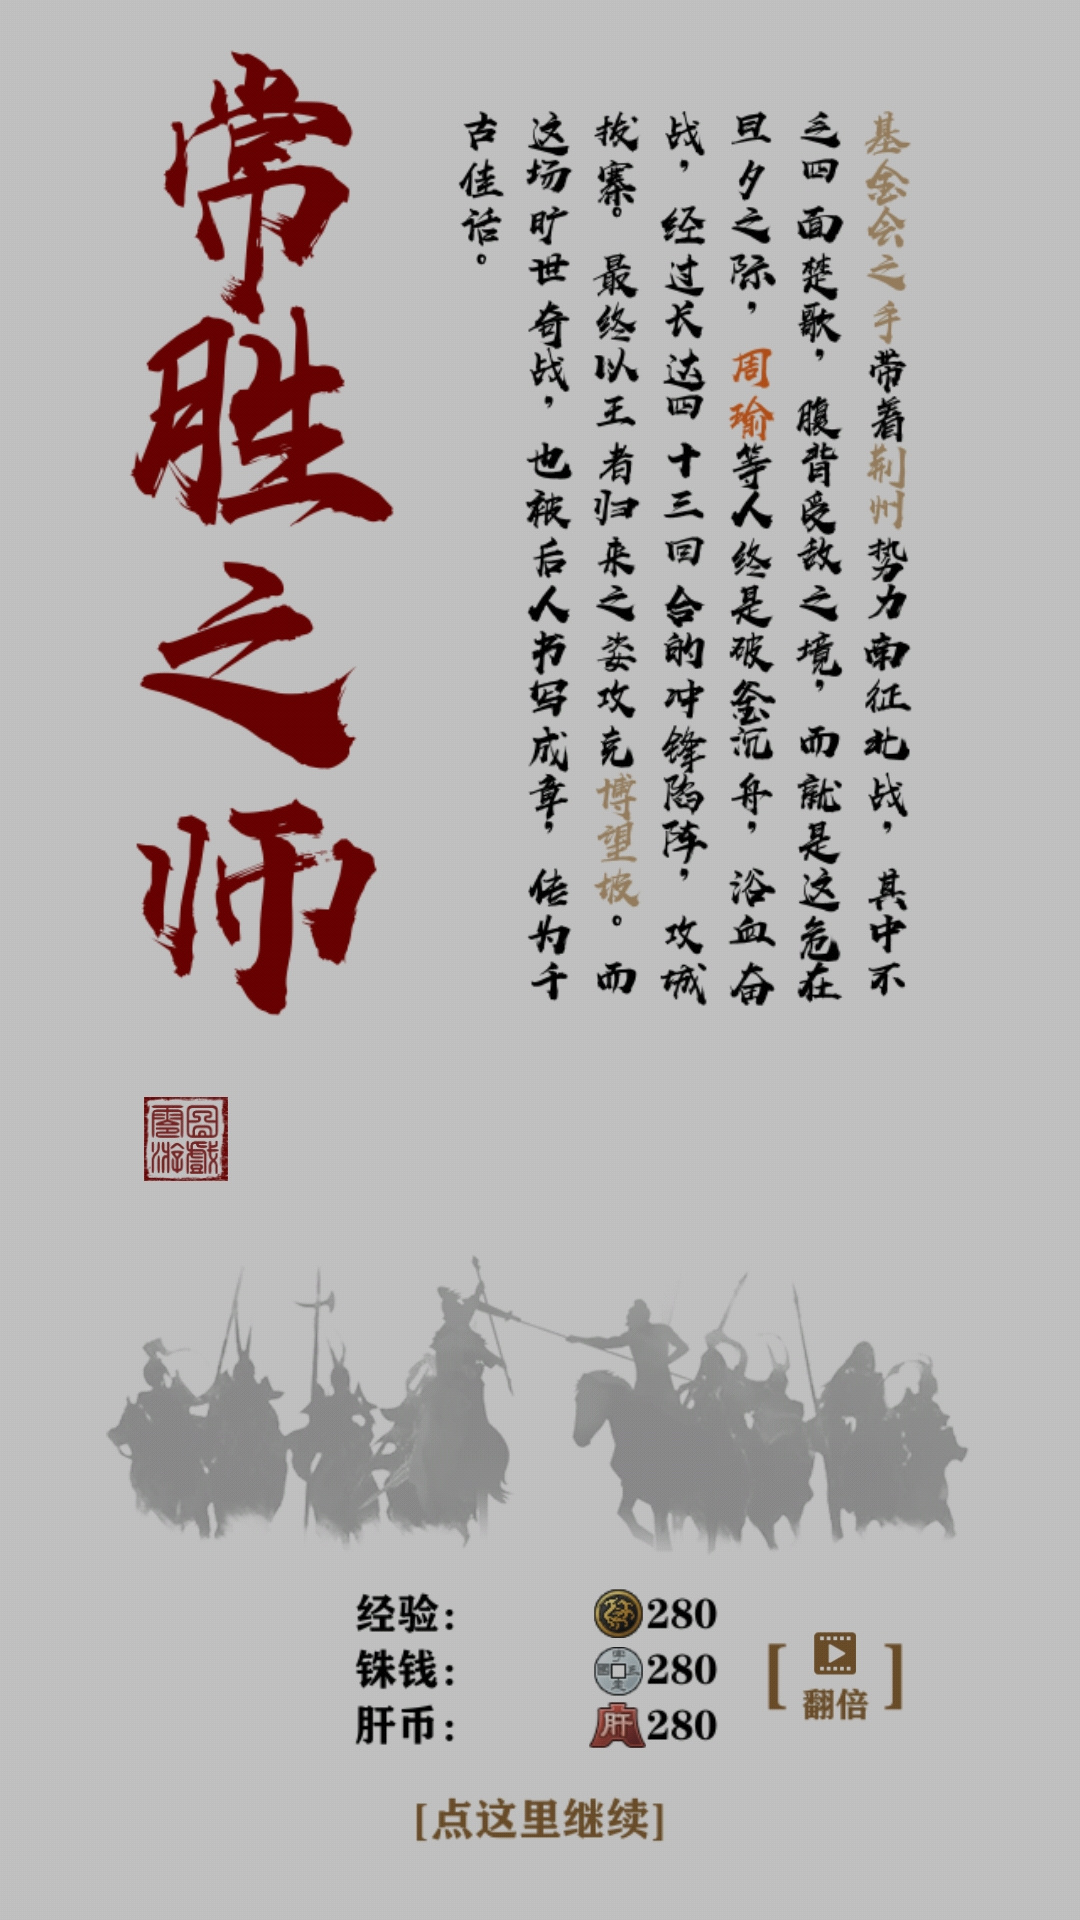 常胜之师
基金会之手带着荆州势力南征北战，其中不
乏四面楚歌，腹背受敌之境，而就是这危在
旦夕之际，周瑜等人终是破釜沉舟，浴血奋
战，经过长达四十三回合的冲锋陷阵，攻城
拔寨。最终以王者归来之姿攻克博望坡。而
这场旷世奇战，也被后人书写成章，传为千
古佳话。
经验：280
铢钱：280
肝币：280
翻倍
[点这里继续]